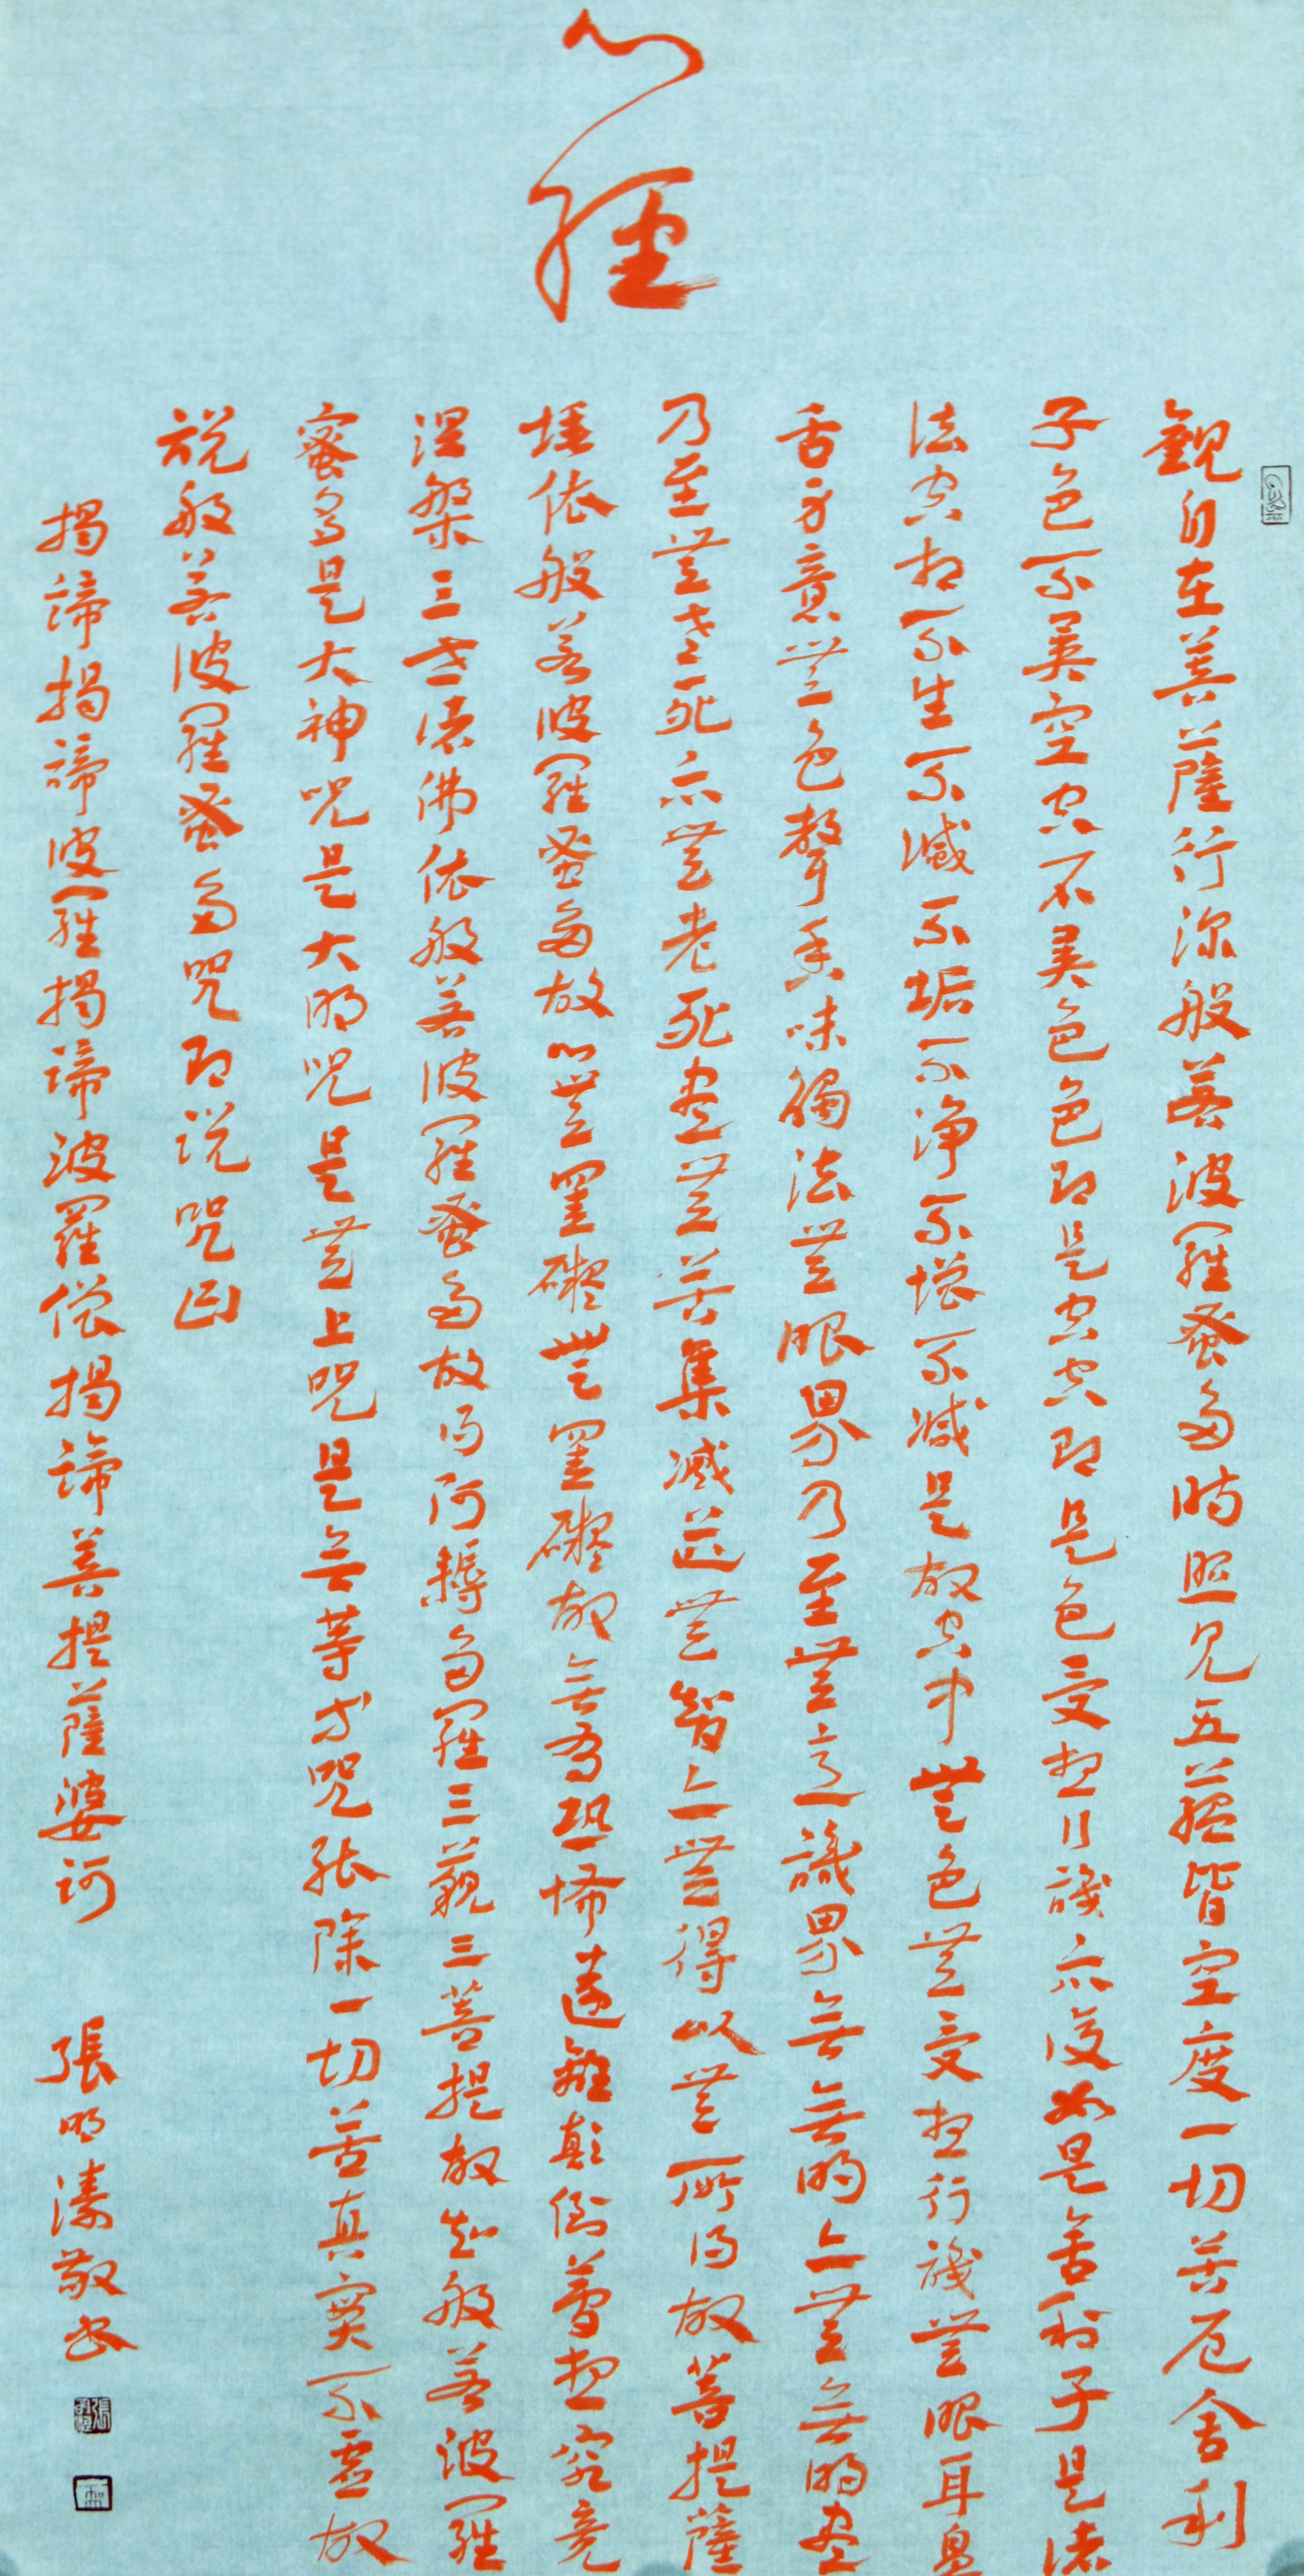 心經
觀自在菩薩行深般若波羅蜜多時照見五蘊皆空度一切苦厄舍利
子色不異空空不異色色即是空空即是色受想行識亦復如是舍利子是諸
法空相不生不滅不垢不淨不增不減是故空中無色無受想行識無眼耳鼻
舌身意無色聲香味觸法無眼界乃至無意識界無無明亦無無明盡
乃至無老死亦無老死盡無苦集滅道無智亦無得以無所得故菩提薩
埵依般若波羅蜜多故心無罣礙無罣礙故無有恐怖遠離顛倒夢想究竟
涅槃三世諸佛依般若波羅蜜多故得阿耨多羅三藐三菩提故知般若波羅
蜜多是大神咒是大明咒是無上咒是無等等咒能除一切苦真實不虛故
說般若波羅蜜多咒即說咒曰
揭諦揭諦波羅揭諦波羅僧揭諦菩提薩婆訶
張明溱敬書